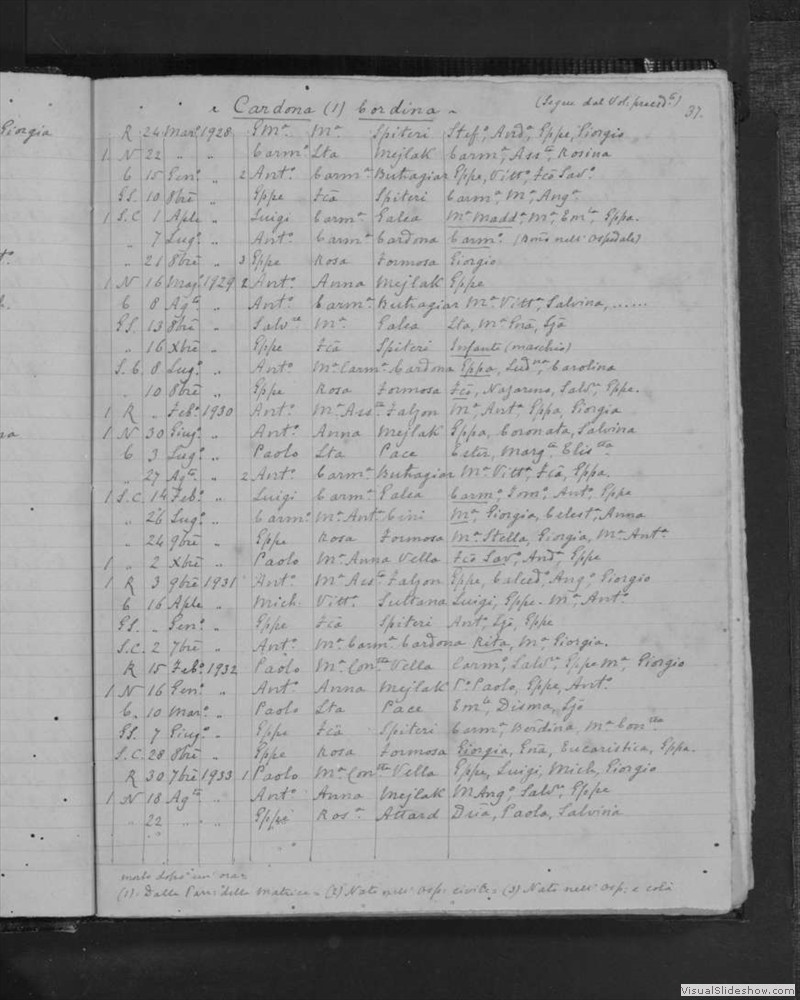 Giorgia
Cardona (1) Cordina
(Segue dal Vol. preced.e) 37.
R 24 Mar.o 1928 Em.a M.a Spiteri Stef.o, And.a, Eppe, Giorgio
1 N 22 " " Carm.o Lta Mejlak Carm.a, Ass.ta, Rosina
C 15 Gen.o " 2 Ant.o Carm.a Buhagiar Eppe, Vitt.o, Fco Sav.o
GS. 10 8bre " Eppe Fca Spiteri Carm.a, M.a, Ang.a
1 S.C 1 Aple " Luigi Carm.a Galea M.a Madd.a, M.a, Em.la, Eppa.
" 7 Lug.o " Ant.o Carm.a Cardona Carm.o (nell'ospedale)
" 21 8bre " 3 Eppe Rosa Formosa Giorgio
1 N 16 Mag.o 1929 2 Ant.o Anna Mejlak Eppe
C 8 Ag.to " Ant.o Carm.a Buhagiar M.a Vitt.a, Salvina, ......
GS. 13 8bre " Salv.re M.a Galea Lta, M.a
" 16 Xbre " Eppe Fca Spiteri Infante (maschio)
S.C 8 Lug.o " Ant.o M.a Carm.a Cardona Eppa, Lud.na, Carolina
" 10 8bre " Eppe Rosa Formosa Fco, Nazareno, Salv.e, Eppe.
1 R " Feb.o 1930 Ant.o M.a Ass.ta Falzon M.a Ant.a, Eppa, Giorgia
1 N 30 Giug.o " Ant.o Anna Mejlak Eppa, Coronata, Salvina
C 3 Lug.o " Paolo Lta Pace Ester, Marg.ta, Elis.tta
" 27 Ag.to " 2 Ant.o Carm.a Buhagiar M.a Vitt.a, Fca, Eppa.
1 S.C. 14 Feb.o " Luigi Carm.a Galea Carm.o, Ant.o, Eppe
" 26 Lug.o " Carm.o M.a Ant.a Cini M.a, Giorgia, Celest.a, Anna
" 24 9bre " Eppe Rosa Formosa M.a Stella, Giorgia, M.a Ant.a
1 " 2 Xbre " Paolo M.a Anna Vella Fco Sav.o, And.a, Eppe
1 R 3 9bre 1931 Ant.o M.a Ass.ta Falzon Eppe, Calced.o, Ang.o, Giorgio
C 16 Aple " Mich. Vitt.a Sultana Luigi, Eppe, M.a, Ant.o
GS. " Gen.o " Eppe Fca Spiteri Ant.o, Eppe
S.C. 2 7bre " Ant.o M.a Carm.a Cardona Rita, M.a, Giorgia.
R 15 Feb.o 1932 Paolo M.a Con.tta Vella Carm.o, Salv.e, Eppe M.a, Giorgio
1 N 16 Gen.o " Ant.o Anna Mejlak P.o Paolo, Eppe, Ant.o
C. 10 Mar.o " Paolo Lta Pace Em.le, Disma,
GS. 7 Giug.o " Eppe Fca Spiteri Carm.a, M.a Con.tta
S.C. 28 8bre " Eppe Rosa Formosa Giorgia, Eucaristica, Eppa.
R 30 7bre 1933 1 Paolo M.a Con.tta Vella Eppe, Luigi, Mich., Giorgio
1 N 18 Ag.to " Ant.o Anna Mejlak M. Ang.o, Salv.e, Eppe
" 22 " " Eppe Ros.a Attard Paola, Salvina
morto dopo un'ora
(1) Dalla Parr. della Matrice - (2) Nato nell'osp. civile - (3) Nato nell'osp. e
VisualSlideshow.com